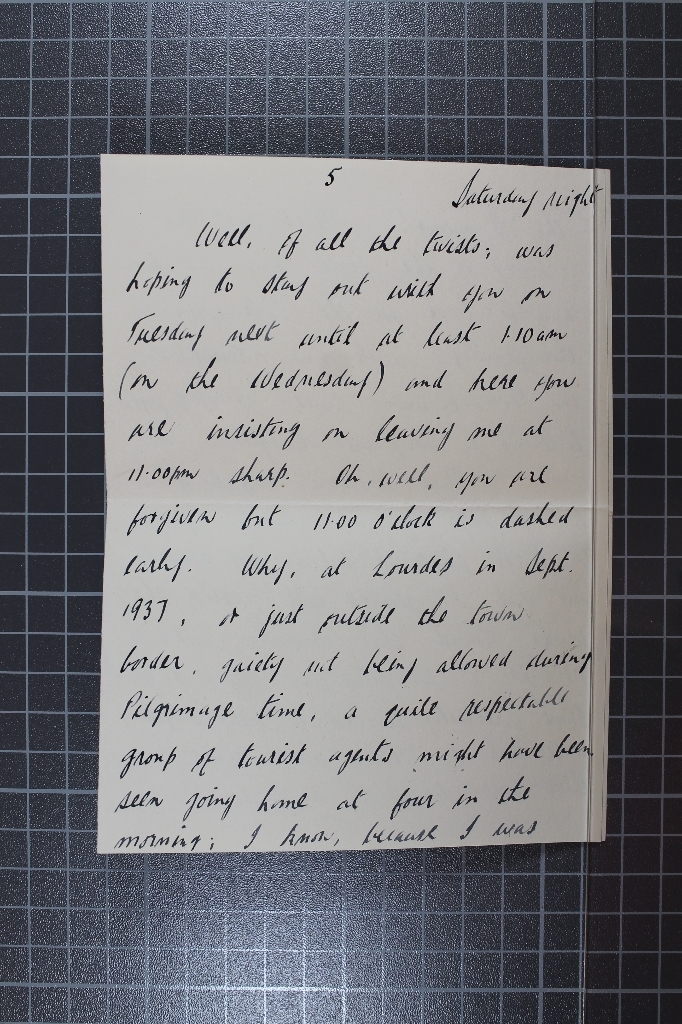 5
Saturday night
Well, of all the twists; was
hoping to stay out with you on
Tuesday next until at least 1.10am
(on the Wednesday) and here you
are insisting on leaving me at
11.00pm sharp. Oh, well, you are
forgiven but 11.00 o'clock is dashed
early. Why, at Lourdes in Sept.
1937, or just outside the town
border, gaiety not being allowed during
Pilgrimage time, a quite respectable
group of tourist agents might have been
seen going home at four in the
morning; I know, because I was